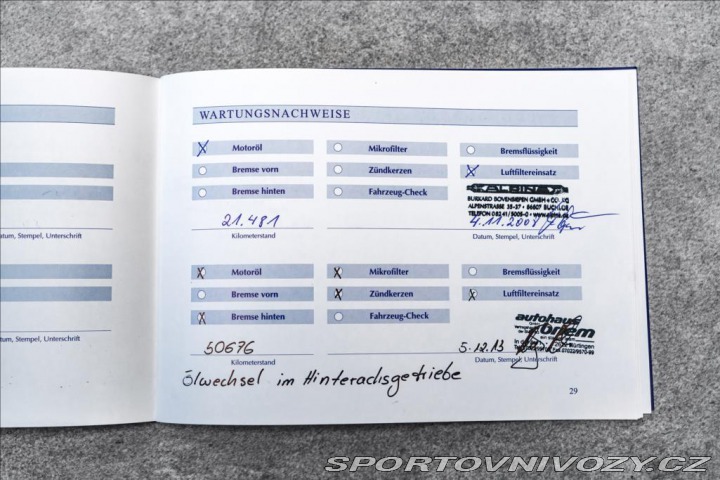 WARTUNGSNACHWEISE
X Motoröl Mikrofilter Bremsflüssigkeit
Bremse vorn Zündkerzen X Luftfiltereinsatz
Bremse hinten Fahrzeug-Check
ALPINA
BURKARD BOVENSIEPEN GMBH + CO. KG
ALPENSTRASSE 35-37 • 86807 BUCHLOE
TELEFON 08241/5005-0 • www.alpina.de
21.481 4.11.2008
Kilometerstand Datum, Stempel, Unterschrift
atum, Stempel, Unterschrift
X Motoröl X Mikrofilter Bremsflüssigkeit
Bremse vorn X Zündkerzen X Luftfiltereinsatz
X Bremse hinten Fahrzeug-Check
autohaus
50676 5.12.13
Kilometerstand Datum, Stempel, Unterschrift
tum, Stempel, Unterschrift
Ölwechsel im Hinterachsgetriebe
29
SPORTOVNIVOZY.CZ